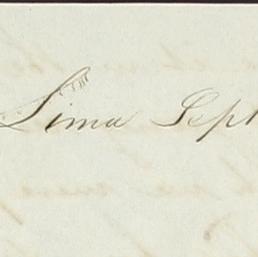 Lima Sept